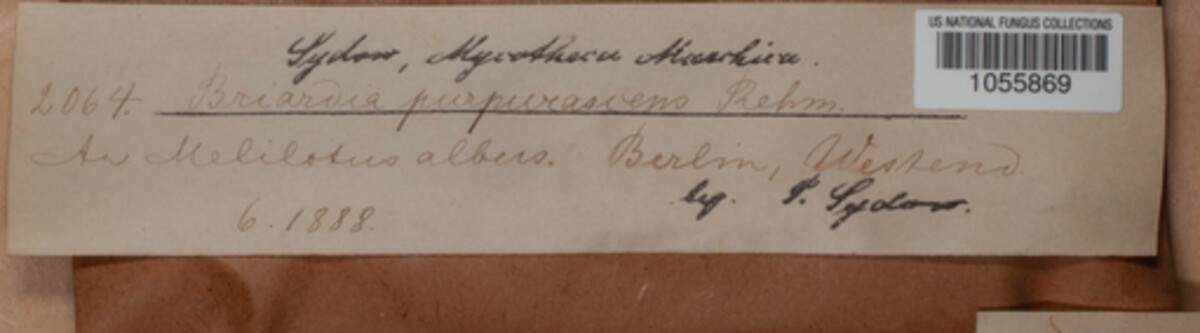 US NATIONAL FUNGUS COLLECTIONS
1055869
Sydow, Mycotheca Marchica.
2064. Briardia purpurascens Rehm.
An Melilotus albus. Berlin, Westend
6. 1888.
leg. P. Sydow.